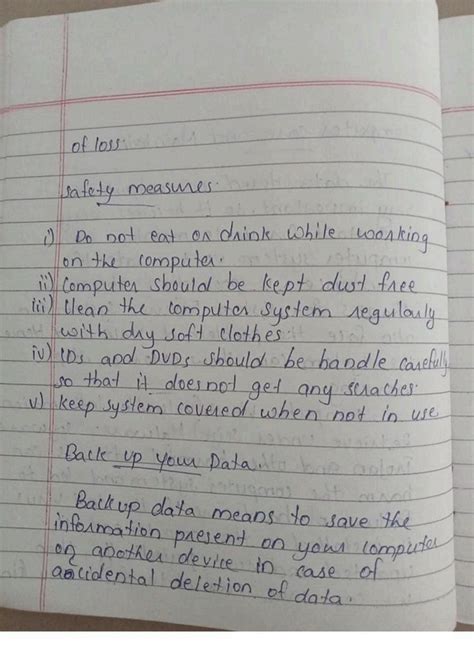 of loss.
safety measures.
i) Do not eat or drink while working
on the computer.
ii) Computer should be kept dust free
iii) Clean the computer system regularly
with dry soft clothes.
iv) CDs and DVDs should be handle carefully
so that it does not get any scraches.
v) keep system covered when not in use
Back up your Data.
Backup data means to save the
information present on your computer
on another device in case of
accidental deletion of data.